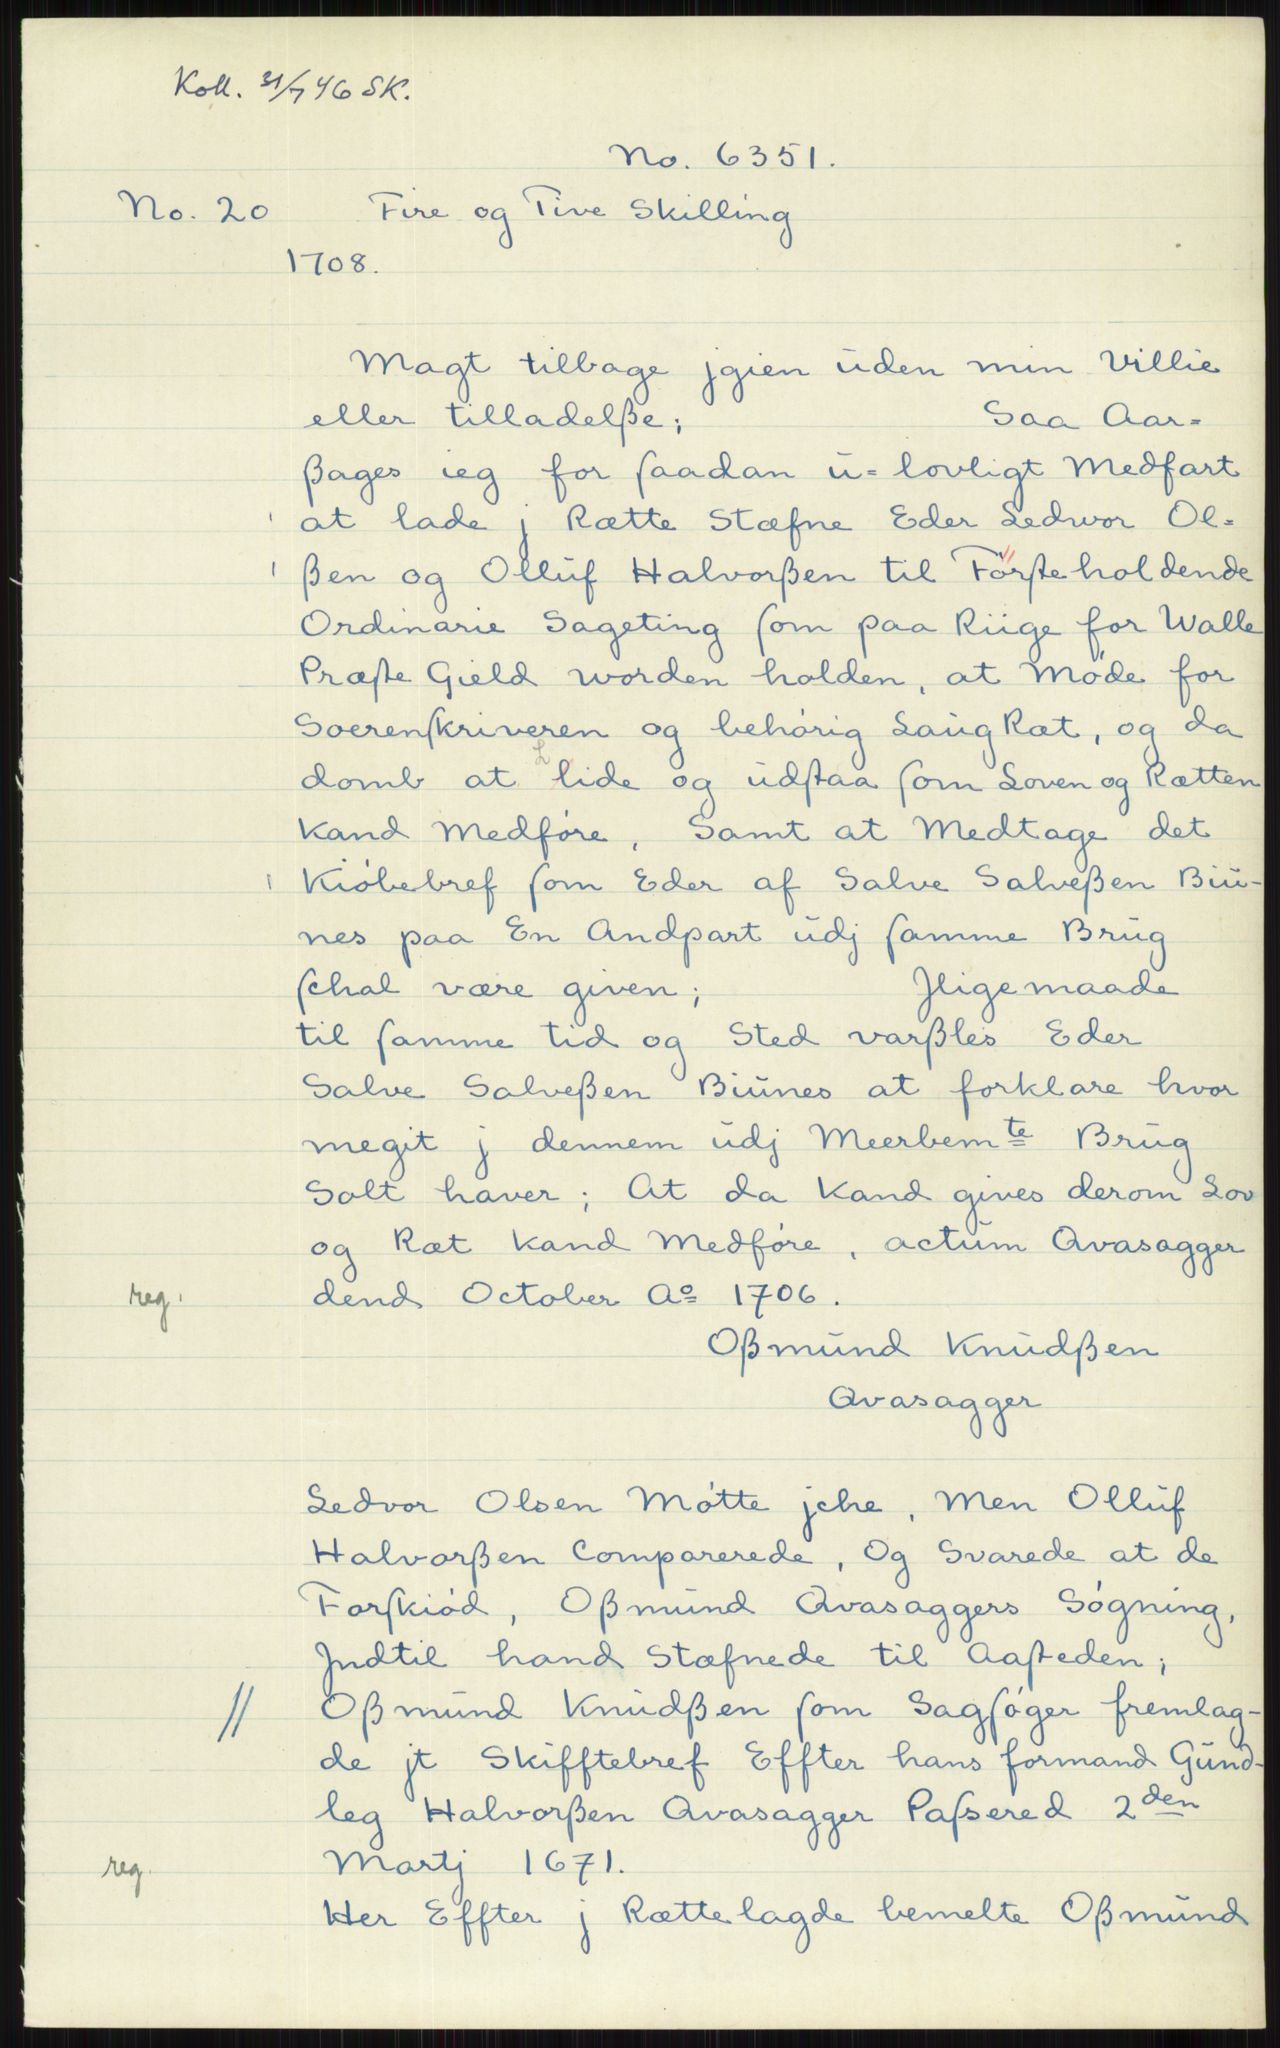 Koll. 31/7 46 SK.
No. 6351.
No. 20 Fire og Tive Skilling
1708.
Magt tilbage jgien uden min Villie
eller tilladelße; Saa Aar=
ßages ieg for saadan u=lovligt Medfart
at lade j Rætte Stæfne Eder Ledwor Ol=
ßen og Olluf Halvorßen til Förste holdende
Ordinarie Sageting som paa Riige for Walle
Præste Gield worden holden, at Møde for
Soerenskriveren og behørig Laug Ræt, og da
domb at lide og udstaa som Loven og Rætten
Kand Medføre, Samt at Medtage det
Kiøbebref som Eder af Salve Salveßen Biu-
nes paa En Andpart udj samme Brug
schal være given; Jligemaade
til samme tid og Sted varßles Eder
Salve Salveßen Biunes at forklare hvor
megit j dennem udj Meerbemte Brug
Solt haver; At da Kand gives derom Lov
og Ræt Kand Medføre, actum Avasagger
reg. dend October Ao 1706.
Oßmund Knudßen
Avasagger
Ledvor Olsen Møtte jche, Men Olluf
Halvorßen Comparerede, Og Svarede at de
Forskiød, Oßmund Avasaggers Søgning,
Jndtil hand Stæfnede til Aasteden;
// Oßmund Knudßen som Sagsøger fremlag-
de jt Skifftebref Effter hans formand Gund-
leg Halvorßen Avasagger Passered 2den
reg. Martj 1671.
Her Effter j Rætte lagde bemelte Oßmund